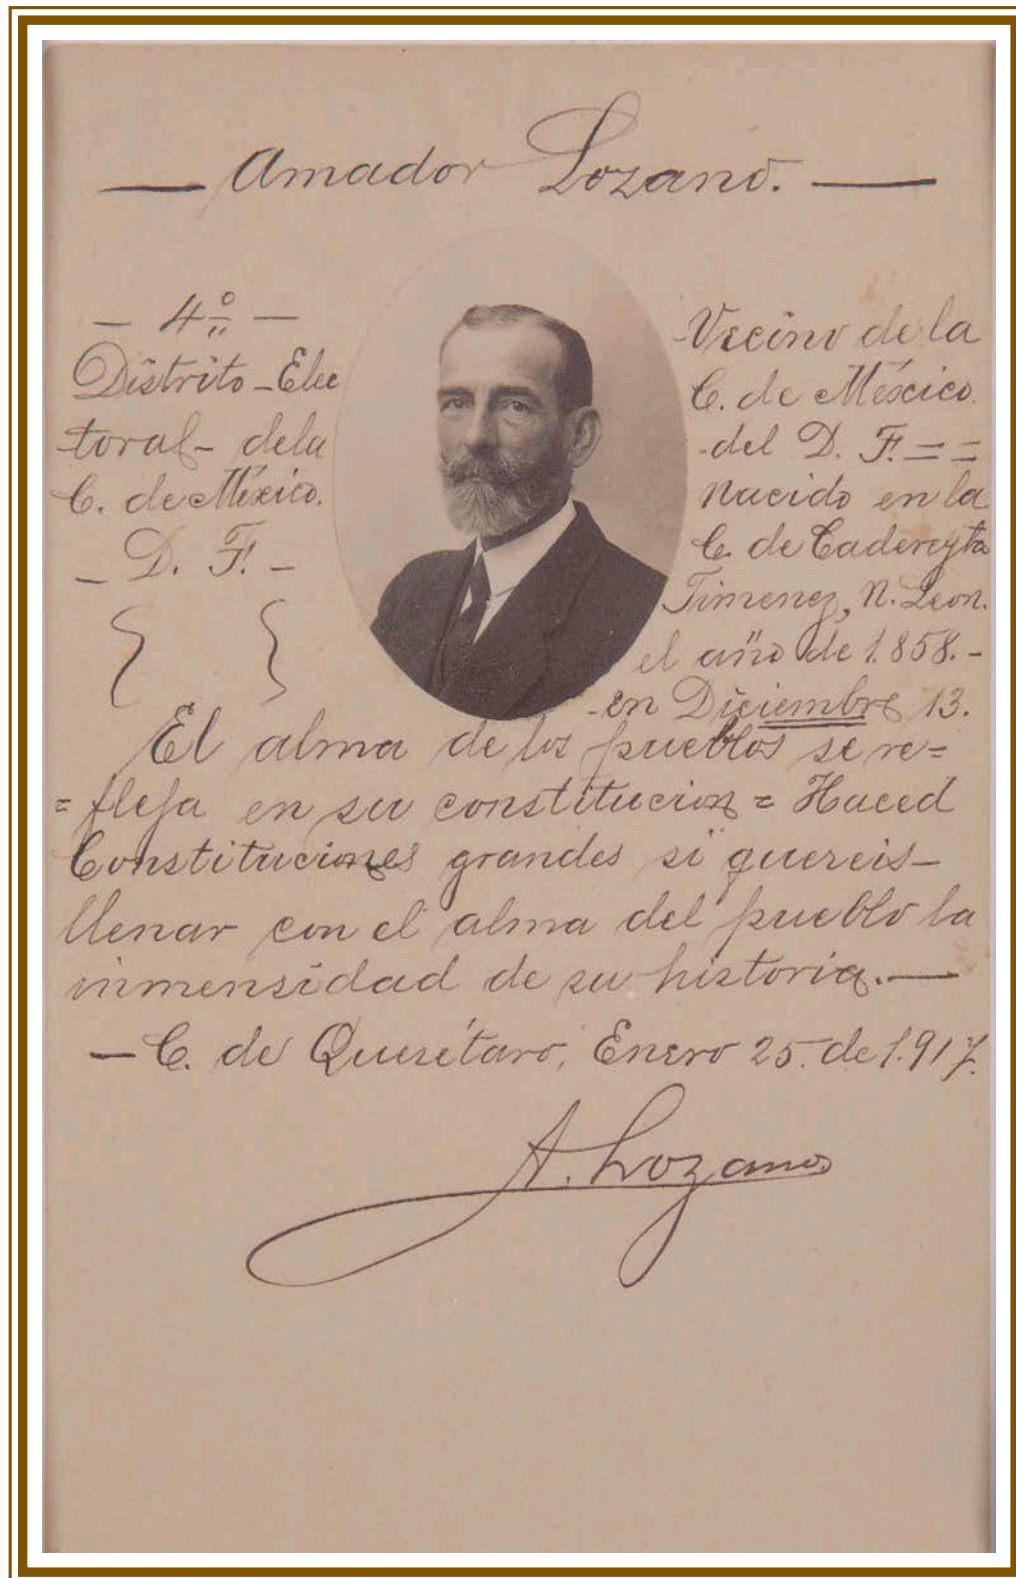 — Amador Lozano. —
— 4º —
Distrito - Elec
toral - dela
C. de México.
- D. F. -
Vecino de la
C. de México.
- del D. F. = =
Nacido en la
C. de Cadereyta
Jimenez, N. Leon.
el año de 1.858. -
- en Diciembre 13.
El alma de los pueblos se re=
= fleja en su constitucion = Haced
Constituciones grandes si quereis -
llenar con el alma del pueblo la
inmensidad de su historia. —
— C. de Querétaro, Enero 25. de 1.917.
A. Lozano